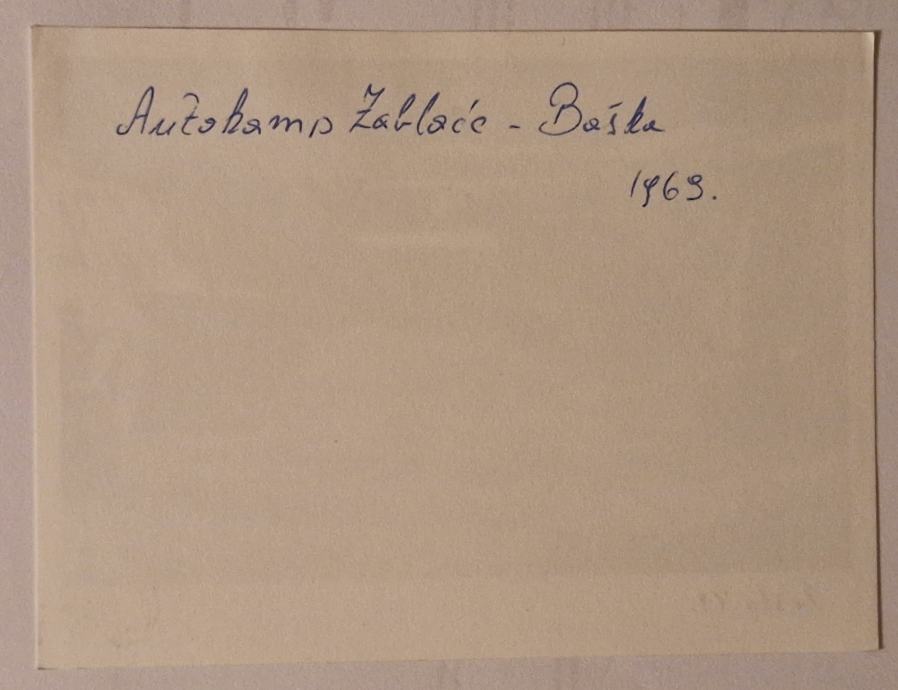 Autokamp Zablaće - Baška
1969.